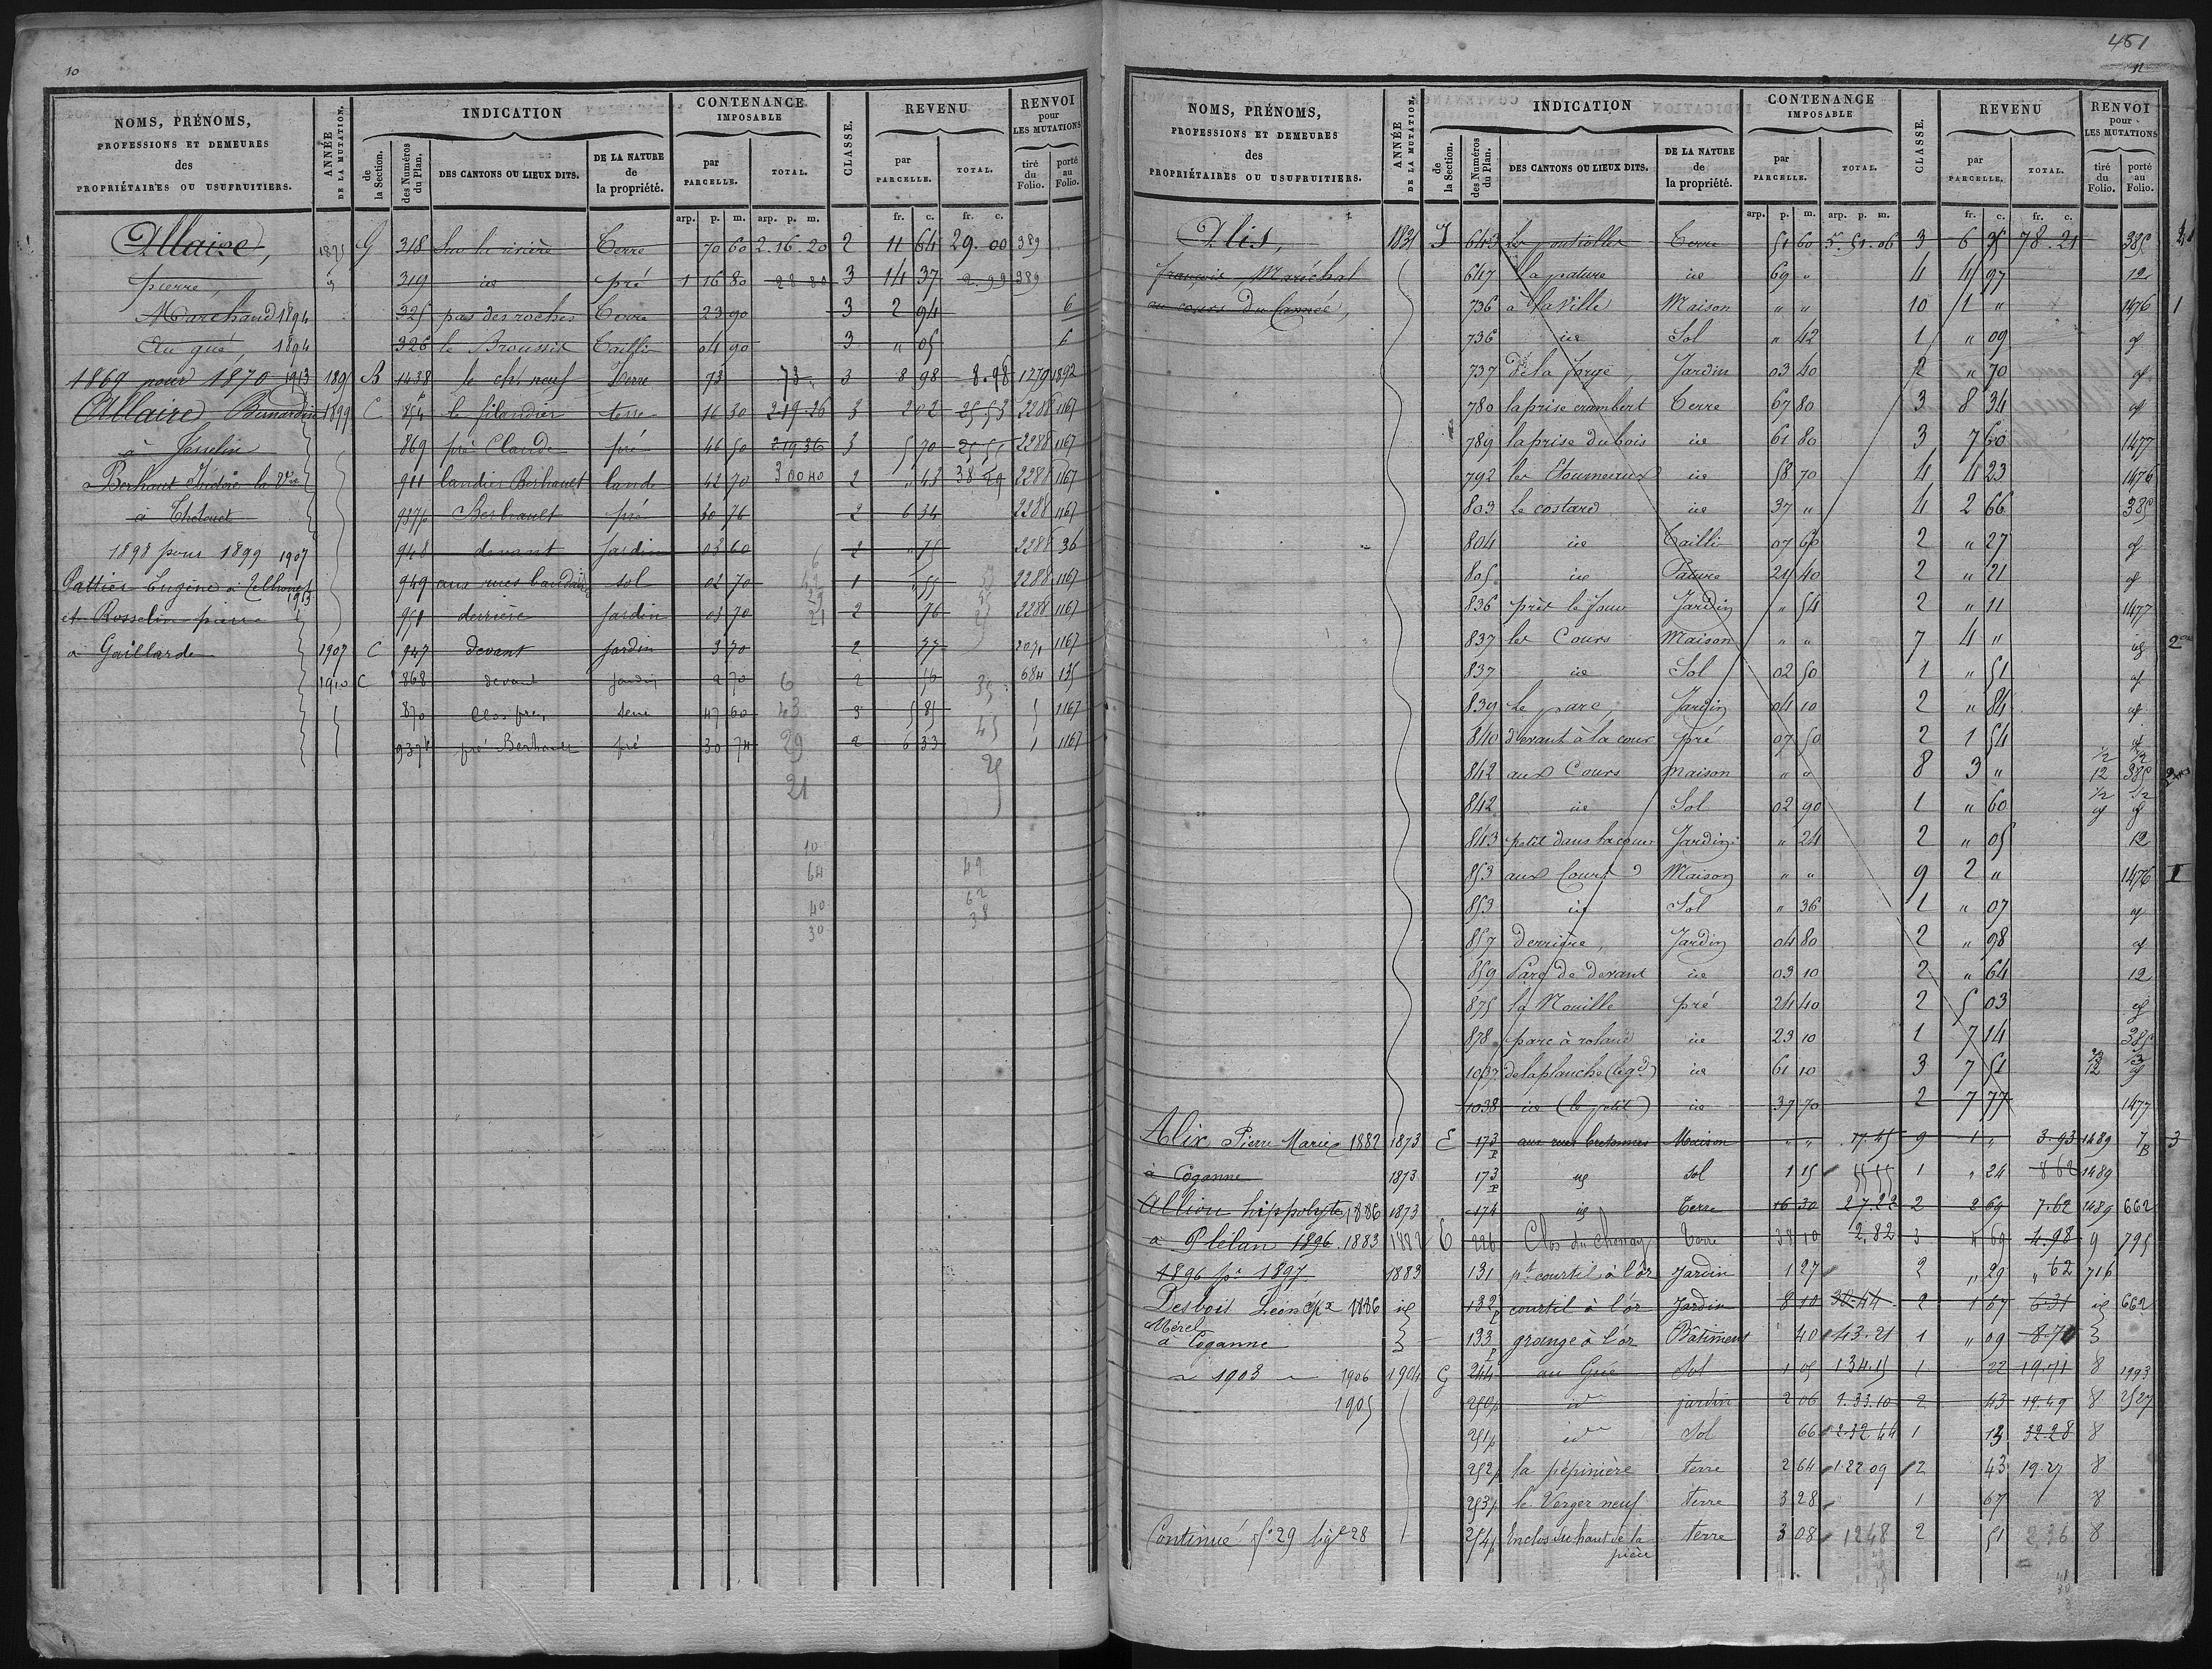 10
NOMS, PRÉNOMS, PROFESSIONS ET DEMEURES des PROPRIÉTAIRES OU USUFRUITIERS.
ANNÉE DE LA MUTATION.
INDICATION
de la Section.
des Numéros du Plan.
DES CANTONS OU LIEUX DITS.
DE LA NATURE de la propriété.
CONTENANCE IMPOSABLE
par PARCELLE.
TOTAL.
CLASSE.
REVENU
par PARCELLE.
TOTAL.
RENVOI pour LES MUTATIONS
tiré du Folio.
porté au Folio.
arp. p. m. arp. p. m. fr. c. fr. c.
Allaire, G 318 Sur la rivière Terre 70 60 2.16.20 2 11 64 29.00 389
pierre, 319 id pré 1 16 80 3 14 37 2.99 389
Marchand 1894 325 pas des roches Terre 23 90 3 2 94 6
Au gué, 1894 326 le Broussis Tailli 04 90 3 " 05 6
1869 pour 1870 1913 B 1438 le ch. neuf Terre 73 73 3 8 98 8.98 1279 1892
Allaire Bernardin 1899 C 854 le filandrier terre 16 30 2.19.26 3 2 02 25.53 2288 1167
à Josselin 869 pré Claude pré 46 50 2 19 36 3 5 70 2288 1167
Berhaut Isidore la Vve 911 landier Berhault lande 42 70 3 00 40 2 " 43 38 29 2288 1167
937p Berhault pré 30 76 2 6 34 2288 1167
1898 pour 1899 1907 948 devant jardin 03 60 2 " 75 2288 36
Pattier Eugène à 1913 949 aux rues sol 02 70 1 " 55 2288 1167
et Rosselin pierre 951 derrière jardin 03 70 2 76 2288 1167
à Gaillarde 1907 C 947 devant jardin 3 70 2 77 2071 1167
1910 C 868 devant jardin 2 70 2 56 684 135
870 Clos pré 47 60 3 5 81 1167
937p pré Berhault pré 30 74 2 6 33 1167
6 43 29 21
35 45 25
10
64 49
62
40 38
30
451
11
NOMS, PRÉNOMS, PROFESSIONS ET DEMEURES des PROPRIÉTAIRES OU USUFRUITIERS.
ANNÉE DE LA MUTATION.
INDICATION
de la Section.
des Numéros du Plan.
DES CANTONS OU LIEUX DITS.
DE LA NATURE de la propriété.
CONTENANCE IMPOSABLE
par PARCELLE.
TOTAL.
CLASSE.
REVENU
par PARCELLE.
TOTAL.
RENVOI pour LES MUTATIONS
tiré du Folio.
porté au Folio.
arp. p. m. arp. p. m. fr. c. fr. c.
Alis, 1831 J 643 Terre 51 60 5.51.06 3 6 35 78.21 385
françois, Maréchal 647 la pature id 69 " 4 4 97 12
au cours du 736 à la Ville Maison " " 10 1 " 1476 1
736 id Sol " 42 1 " 09 id
737 de la forge Jardin 03 40 2 " 70 id
780 la prise erambert Terre 67 80 3 8 34 id
789 la prise du bois id 61 80 3 7 60 1477
792 les id 58 70 4 4 23 1476
803 Le costard id 37 " 4 2 66 385
804 id Tailli 07 60 2 " 27 id
805 id Pature 21 40 2 " 21 id
836 près le four Jardin " 54 2 " 11 1477
837 les Cours Maison " " 7 4 " id
837 id Sol 02 50 1 " 51 id
839 Le parc, Jardin 04 10 2 " 84 id
840 devant à la cour pré 07 50 2 1 54 id
842 aux Cours Maison " " 8 3 " 1/2 12 1/2 385
842 id Sol 02 90 1 " 60 1/2 id 1/2 id
843 petit dans la cour Jardin " 24 2 " 05 12
853 aux Cours Maison " " 9 2 " 1476 1
853 id Sol " 36 1 " 07 id
857 derrière, Jardin 04 80 2 " 98 id
859 Parc de devant id 03 10 2 " 64 12
875 la Nouille pré 24 40 2 5 03 id
878 parc à roland id 23 10 1 7 14 385
1037 de la planche (le gd) id 61 10 3 7 51 2/3 12 1/3 id
1038 id (le petit) id 37 70 2 7 77 1477
Alix Pierre Marie 1882 1873 E 173 P aux rues bretonnes Maison " " 17.45 9 1 " 3.93 1489 7 B 3
à Coganne 1873 173 P id Sol 1 15 1 " 24 8 62 1489
Allion hippolyte 1886 1873 174 id Terre 16 30 27.22 2 2 69 7.62 1489 662
à Plélan 1896 1883 1882 E 226 Clos du chenay Terre 38 10 2,82 3 4 69 4.98 9 795
1896 pr 1897 1883 131 pt courtil à l'or Jardin 1 27 2 " 29 " 62 716
Desbois Léon épx 1886 id 132 P courtil à l'or Jardin 8 10 30.44 2 1 67 6.31 id 662
Mérel
à Coganne 133 P grange à l'or Bâtiment " 40 43.21 1 " 09 8.70
1903 1906 1904 G 244 au Gué Sol 1 05 1 34.15 1 22 19.71 8 1993
1905 250p id jardin 2 06 1.33.10 2 43 19.49 8 2527
251p id Sol 66 2.32.44 1 13 32.28 8
252p la pépinière terre 2 64 1.22.09 2 43 19.27 8
253p le Verger neuf terre 3 28 1 67 8
Continué fo 29 lige 28 254p Enclos du haut de la pièce terre 3 08 1248 2 51 2 36 8